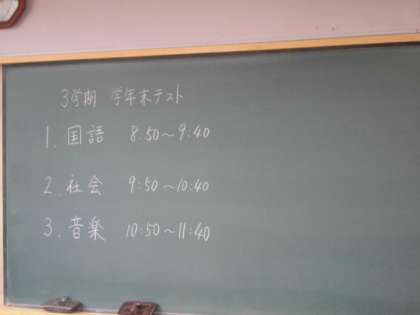 3学期 学年末テスト
1. 国語 8:50～9:40
2. 社会 9:50～10:40
3. 音楽 10:50～11:40